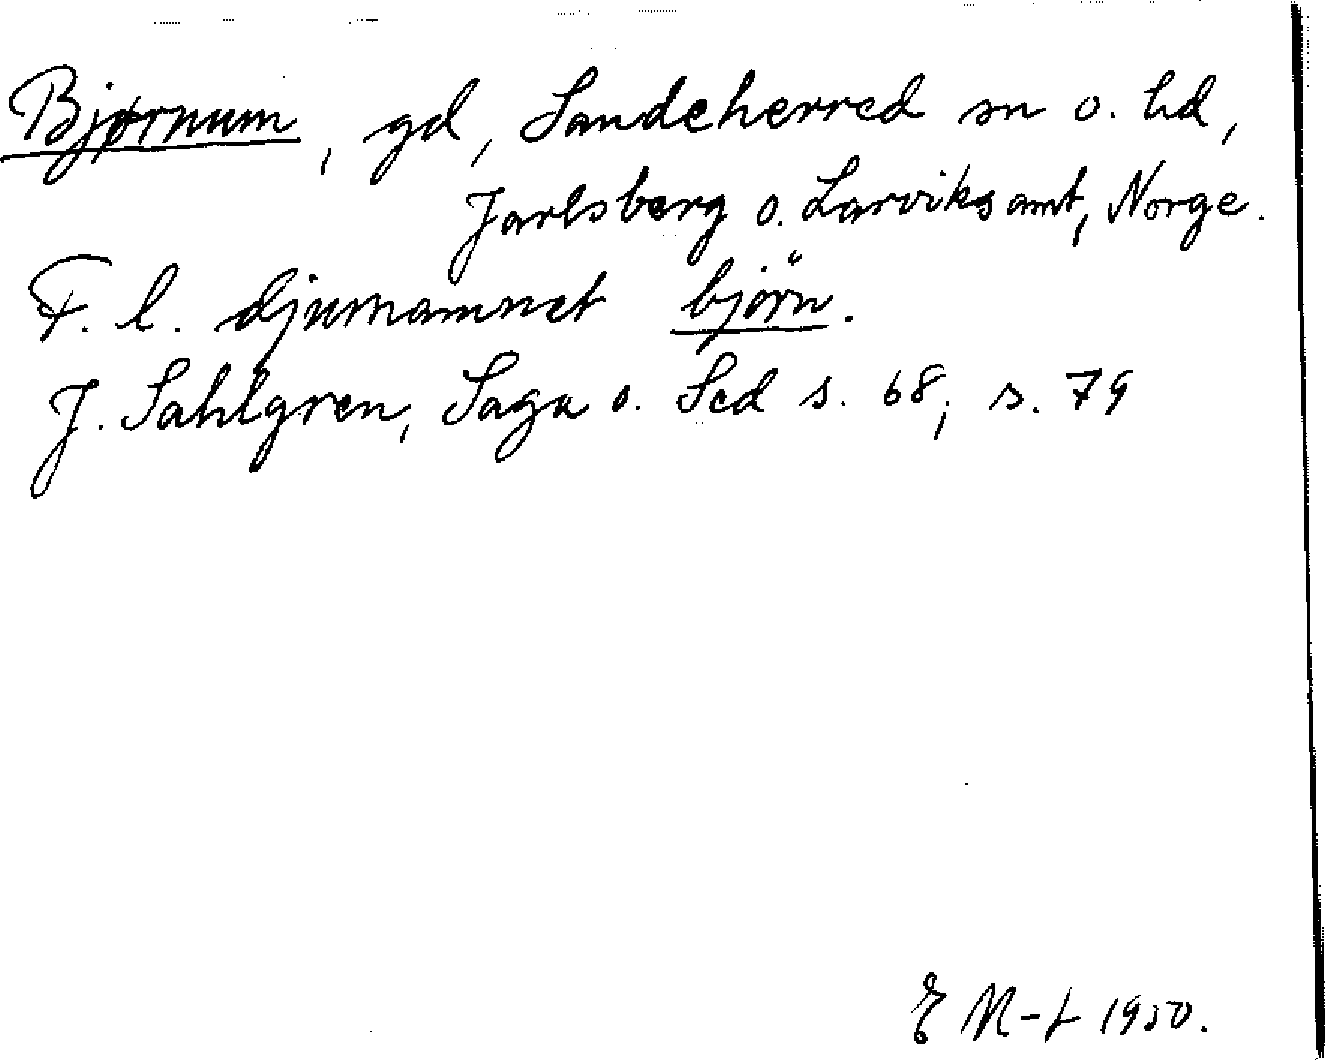 Bjørnum, gd, Sandeherred sn o. hd,
Jarlsberg o. Larviks amt, Norge.
F. l. djurnamnet björn.
J. Sahlgren, Saga o. Sed s. 68; s. 79
E M-L 1950.